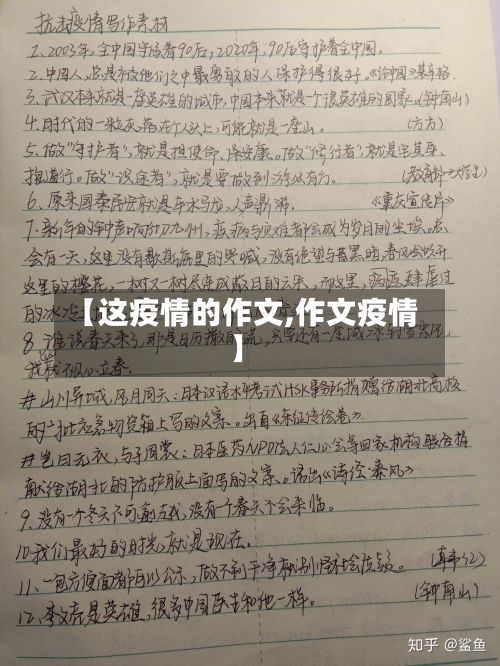 抗击疫情写作素材
1、2003年,全中国守护着90后,2020年,90后守护着全中国。
2、中国人,总是被他们之中最勇敢的人保护得很好。《论中国》基辛格
3、武汉本来就是一座英雄的城市,中国本来就是一个很英雄的国家。(钟南山)
4、时代的一粒灰,落在个人头上,可能就是一座山。(方方)
5、做"守护者",就是担使命、保安康。做"修行者",就是宅其身、
道行。做"汲途者",就是要做到
6、原来国泰庄安就是车水马龙,人声鼎沸。《重庆宣传片》
7、新年的钟声响彻九州,疫病与灾难都会成为岁月的尘埃。总
会有一天,这里没有歇斯底里的哭喊,没有绝望与昏黑暗,春风会吹开
这里的樱花,一树又一树尽连成蔽日的云朵,那么
的冰冷
【这疫情的作文,作文疫情
】
8、谁说春天来了,那是日历撒的谎,只要还有一座城
我就不认立春。
#山川异域,风月同天:日本汉语水平考试HSK事务所捐赠给湖北高校
的 物资箱上写的文案。出自《东征传绘卷》
#岂曰无衣,与子同裳:日本医药NPO法人仁心会等四家机构联合捐
献给湖北的防护服上面写的文案。语出《诗经·秦风》
9、没有一个冬天不可逾越,没有一个春天不会来临。
10、我们最好的时光,就是现在。
11、一包方便面都可以公示,做不到干净就别怪社会质疑。
12、李文亮是英雄,很多中国医生和他一样。(钟南山)
知乎 @鲨鱼